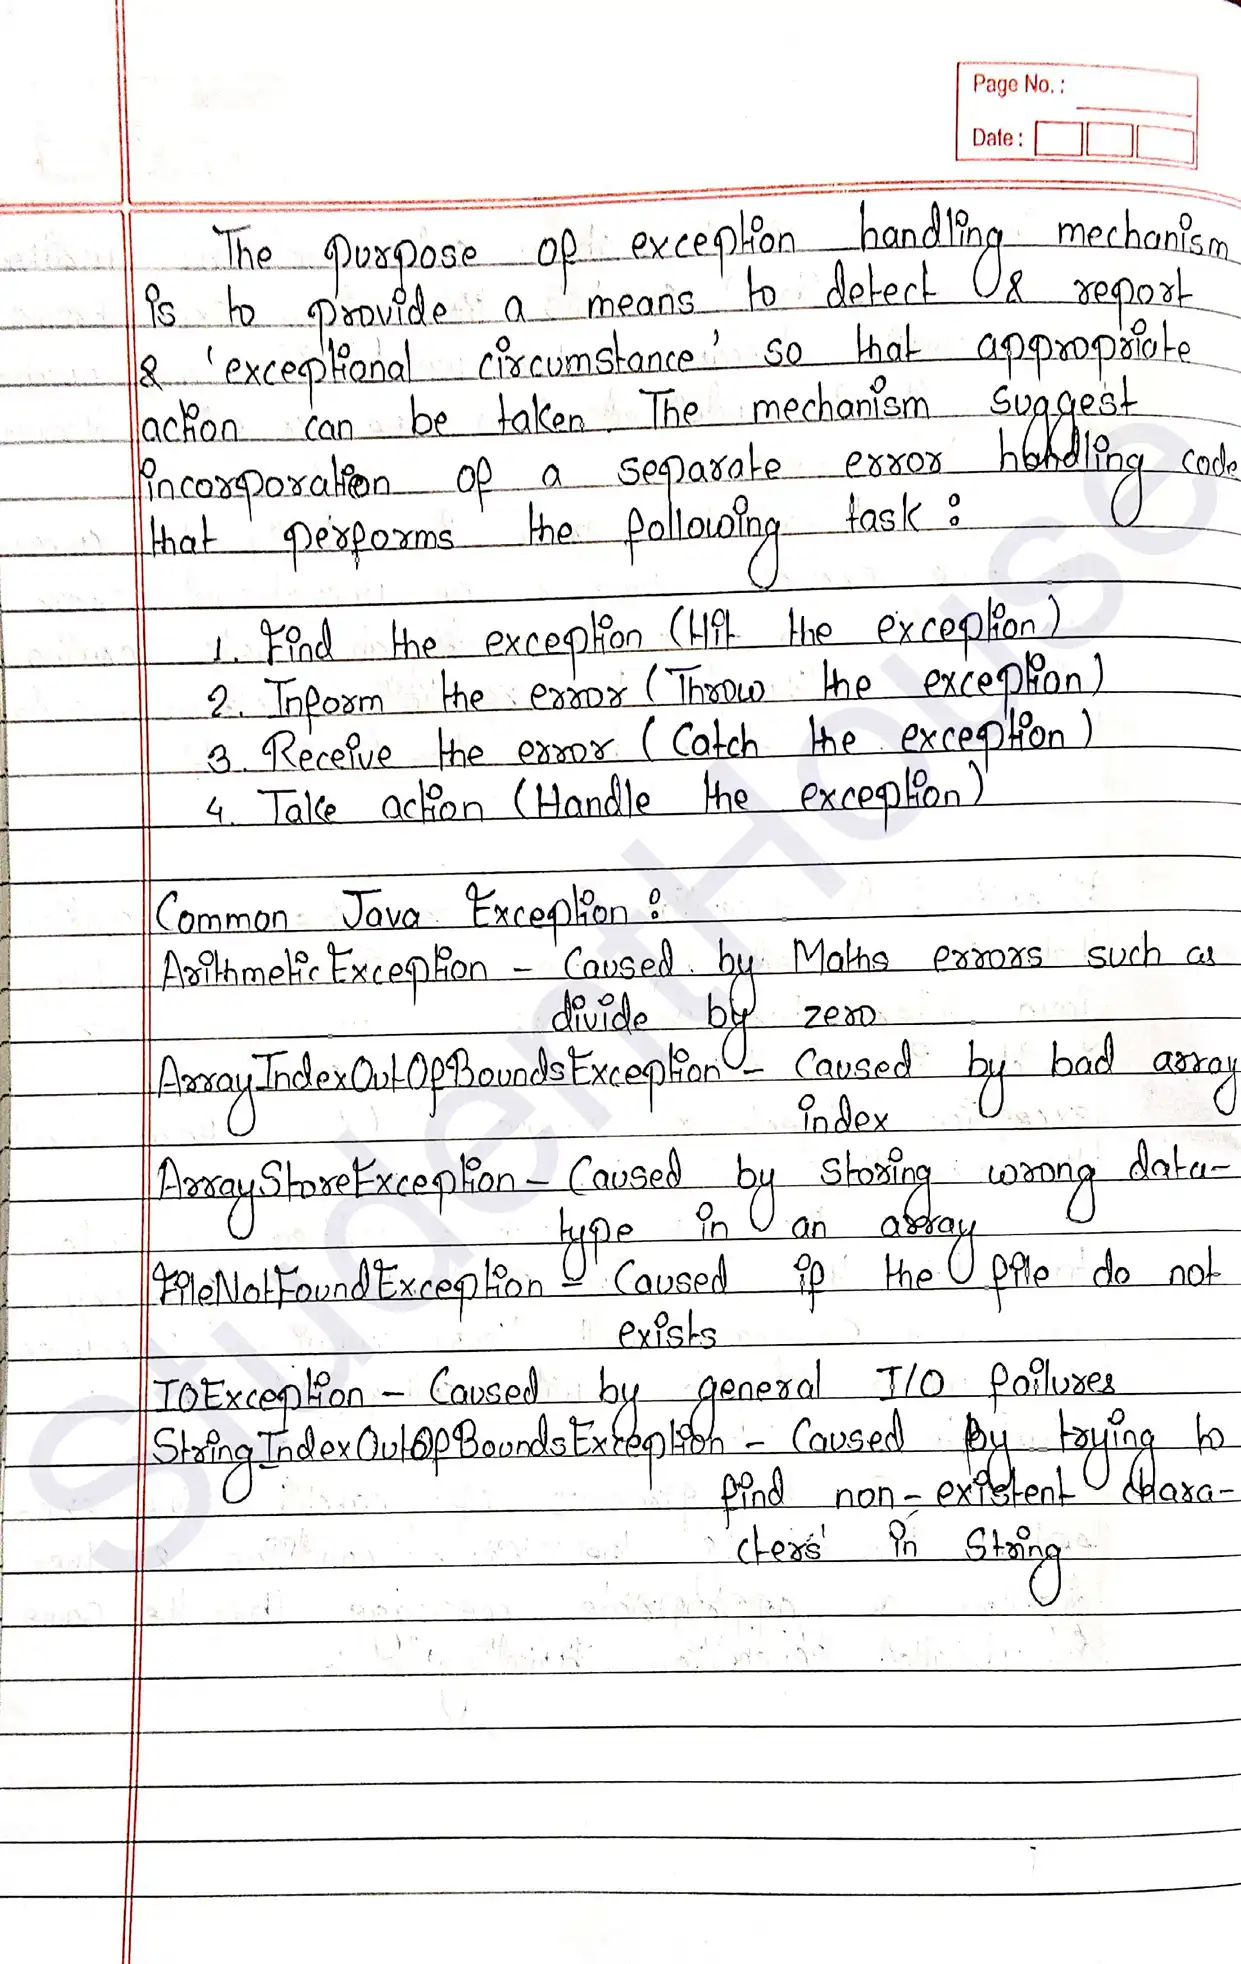 Page No. :
Date :
The purpose of exception handling mechanism
is to provide a means to detect & report
& 'exceptional circumstance' so that appropriate
action can be taken. The mechanism suggest
incorporation of a separate error handling code
that performs the following task :
1. Find the exception (Hit the exception)
2. Inform the error (Throw the exception)
3. Receive the error (Catch the exception)
4. Take action (Handle the exception)
Common Java Exception :
ArithmeticException - Caused by Maths errors such as
divide by zero
ArrayIndexOutOfBoundsException - Caused by bad array
index
ArrayStoreException - Caused by storing wrong data-
type in an array
FileNotFoundException - Caused if the file do not
exists
IOException - Caused by general I/O failures
StringIndexOutOfBoundsException - Caused by trying to
find non-existent chara-
cters' in String
StudentHouse